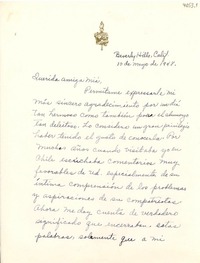 Beverly Hills, Calif
10 de mayo de 1948.
Querida amiga mía,
Permítame expresarle mi
más sincero agradecimiento por
tan hermoso como también por el almuerzo
tan delicioso. Lo considero un gran privilegio
haber tenido el gusto de conocerla. Por
muchos años cuando visitaba
Chile escuchaba comentarios muy
favorables de ud. especialmente de su
íntima comprensión de los problemas
y aspiraciones de sus compatriotas
Ahora me doy cuenta de verdadero
significado que encerraban estas
palabras, solamente que a mi